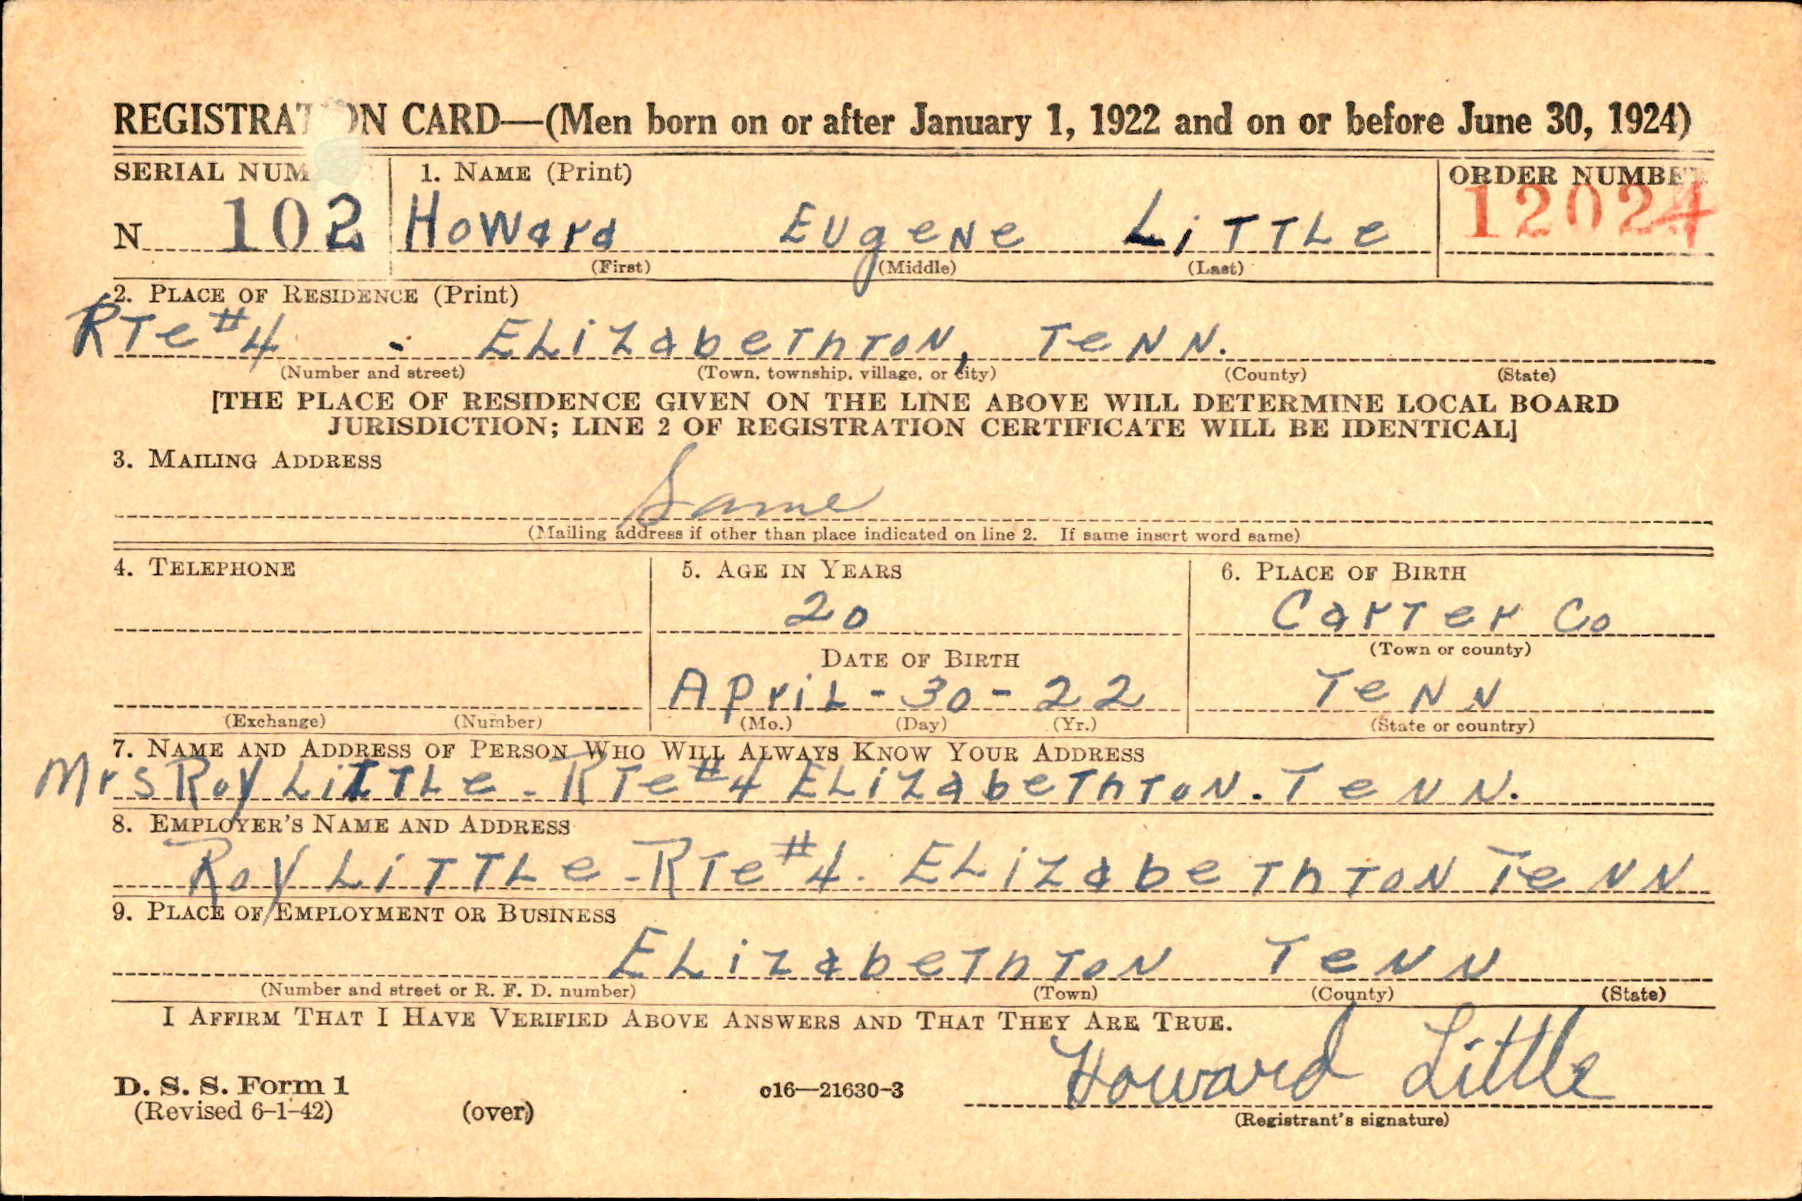 REGISTRATION CARD—(Men born on or after January 1, 1922 and on or before June 30, 1924)
SERIAL NUM 1. NAME (Print) ORDER NUMBER
N 102 Howard Eugene Little 12024
(First) (Middle) (Last)
2. PLACE OF RESIDENCE (Print)
Rte #4 - Elizabethton, Tenn.
(Number and street) (Town, township, village, or city) (County) (State)
[THE PLACE OF RESIDENCE GIVEN ON THE LINE ABOVE WILL DETERMINE LOCAL BOARD
JURISDICTION; LINE 2 OF REGISTRATION CERTIFICATE WILL BE IDENTICAL]
3. MAILING ADDRESS
Same
(Mailing address if other than place indicated on line 2. If same insert word same)
4. TELEPHONE 5. AGE IN YEARS 6. PLACE OF BIRTH
20 Carter Co
(Town or county)
DATE OF BIRTH
April-30-22 Tenn
(Exchange) (Number) (Mo.) (Day) (Yr.) (State or country)
7. NAME AND ADDRESS OF PERSON WHO WILL ALWAYS KNOW YOUR ADDRESS
Mrs Roy Little - Rte #4 Elizabethton. Tenn.
8. EMPLOYER'S NAME AND ADDRESS
Roy Little - Rte #4. Elizabethton Tenn
9. PLACE OF EMPLOYMENT OR BUSINESS
Elizabethton Tenn
(Number and street or R. F. D. number) (Town) (County) (State)
I AFFIRM THAT I HAVE VERIFIED ABOVE ANSWERS AND THAT THEY ARE TRUE.
Howard Little
D. S. S. Form 1 c16—21630-3
(Revised 6-1-42) (over) (Registrant's signature)